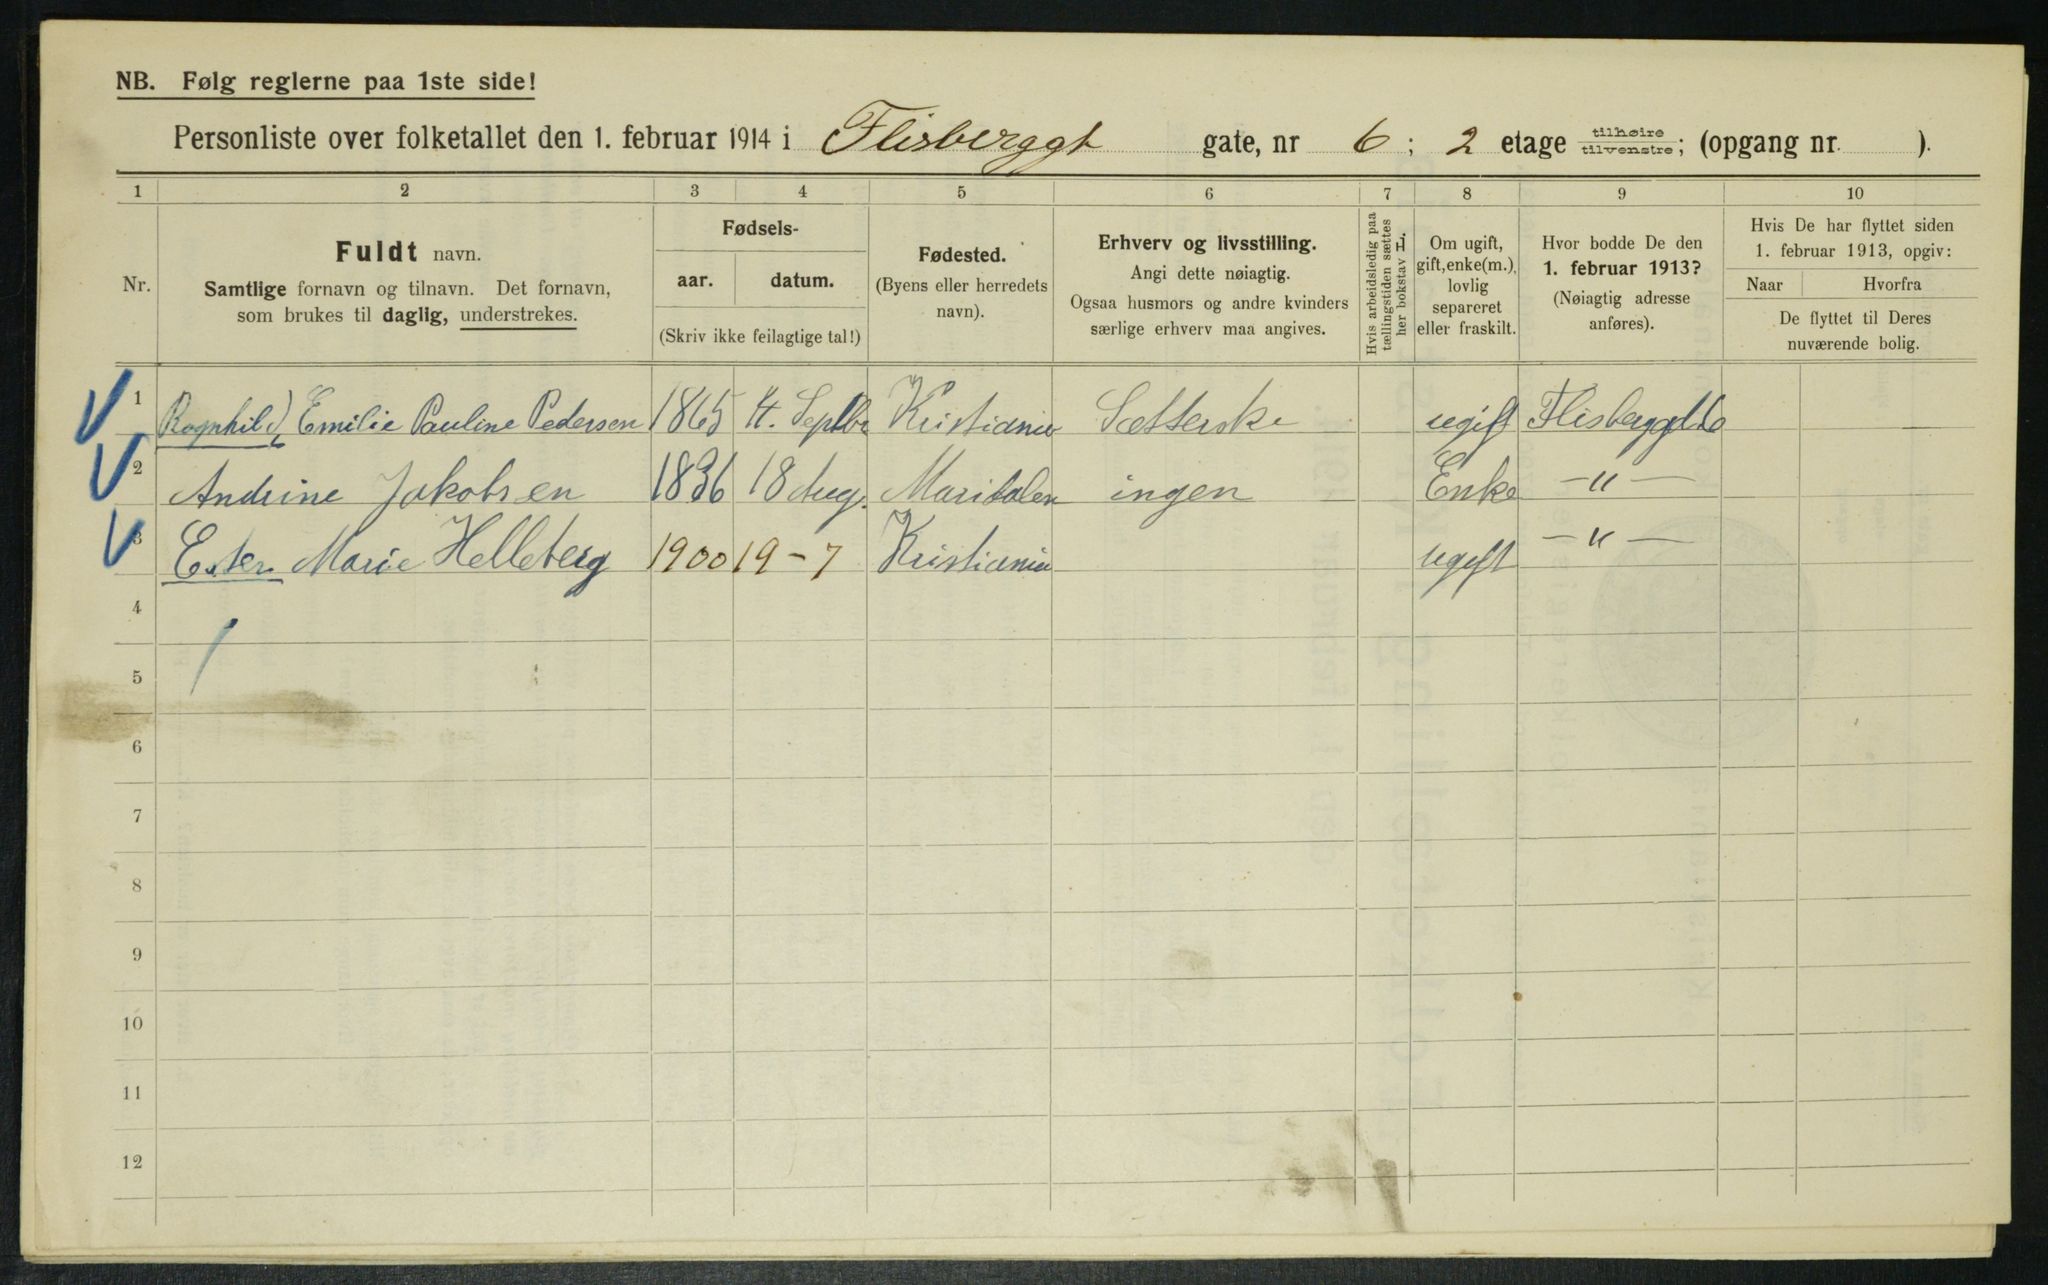 NB. Følg reglerne paa 1ste side!
Personliste over folketallet den 1. februar 1914 i Flisberggt gate, nr 6; 2 etage tilhøire tilvenstre; (opgang nr. ).
1 2 3 4 5 6 7 8 9 10
Nr.
Fuldt navn.
Samtlige fornavn og tilnavn. Det fornavn,
som brukes til daglig, understrekes.
Fødsels-
aar. datum.
(Skriv ikke feilagtige tal!)
Fødested.
(Byens eller herredets
navn).
Erhverv og livsstilling.
Angi dette nøiagtig.
Ogsaa husmors og andre kvinders
særlige erhverv maa angives.
Hvis arbeidsledig paa
tællingstiden sættes
her bokstav L.
Om ugift,
gift, enke(m.),
lovlig
separeret
eller fraskilt.
Hvor bodde De den
1. februar 1913?
(Nøiagtig adresse
anføres).
Hvis De har flyttet siden
1. februar 1913, opgiv:
Naar Hvorfra
De flyttet til Deres
nuværende bolig.
1 Ragnhild Emilie Pauline Pedersen 1865 4. Septbr Kristiania Sætterske ugift Flisberggt 6
2 Andrine Jakobsen 1836 18 Aug. Maridalen ingen Enke -"-
3 Ester Marie Helleberg 1900 19-7 Kristiania ugift -"-
4
5
6
7
8
9
10
11
12